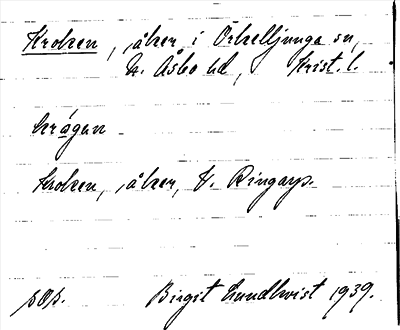 Kroken, åker i Örkelljunga sn,
N. Åsbo hd, Krist. l.
krágen
Kroken, åker, V. Ringarp.
sOp.
Birgit Lundkvist 1939.